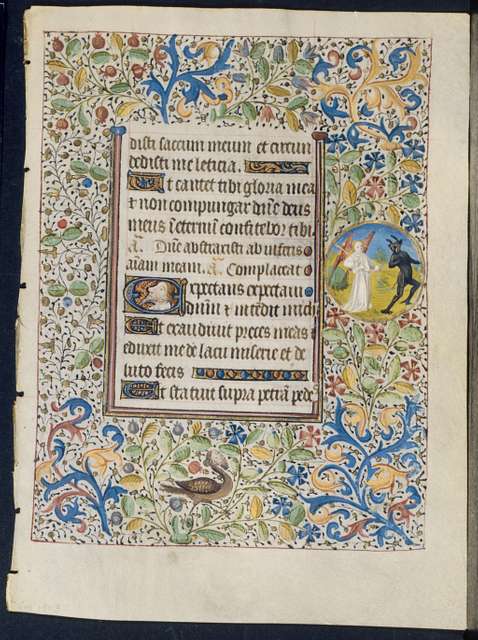 disti saccum meum et circun
dedisti me leticia.
Ut cantet tibi gloria mea
⁊ non compungar dn̄e deus
meus in eternum confitebor tibi
a. Dn̄e abstraxisti ab inferis
aīam meam. a. Complaceat
Expectans expectaui
dn̄m ⁊ intendit mich
Et exaudiuit preces meas ⁊
eduxit me de lacu miserie et de
luto fecis
Et statuit supra petrā pede